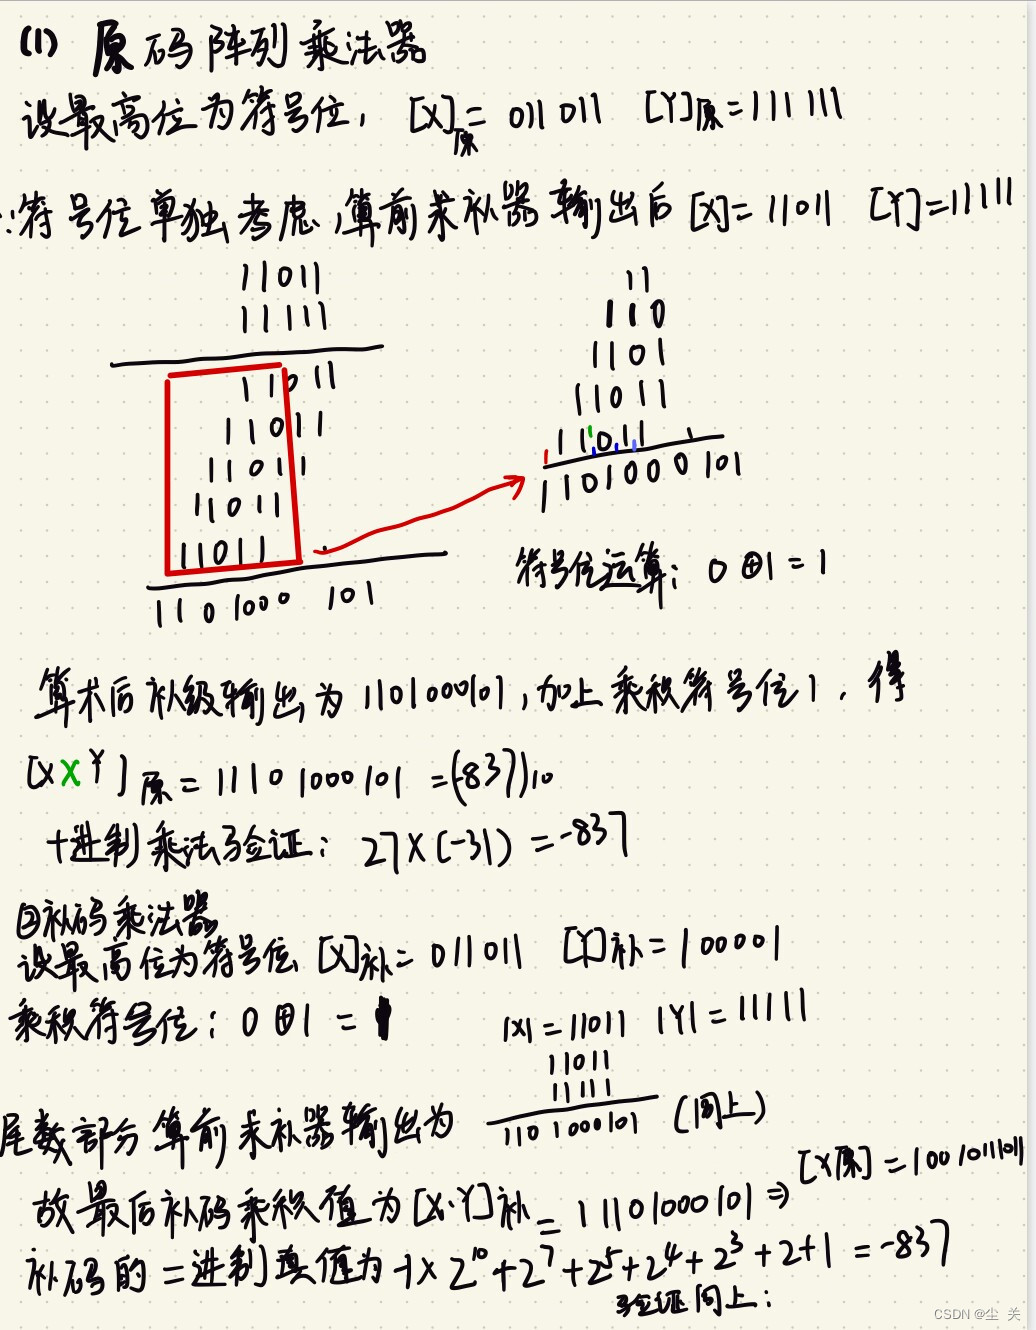 (1) 原码阵列乘法器
设最高位为符号位, [X]原= 011011 [Y]原=111111
∵符号位单独考虑,算前求补器输出后[X]=11011 [Y]=11111
11011
11111
11011
11011
11011
11011
11011
1101000 101
11
110
1101
11011
11011
1101000101
符号位运算: 0⊕1=1
算术后补级输出为1101000101,加上乘积符号位1,得
[X X Y]原=11101000101=(-837)10
十进制乘法验证: 27X(-31)=-837
②补码乘法器
设最高位为符号位 [X]补=011011 [Y]补=100001
乘积符号位: 0⊕1=1
|X|=11011 |Y|=11111
11011
11111
尾数部分算前求补器输出为 1101000101 (同上)
故最后补码乘积值为[X·Y]补=11101000101⇒[X原]=10010111011
补码的二进制真值为-1×2^10+2^7+2^5+2^4+2^3+2+1=-837
验证同上:
CSDN @尘 关